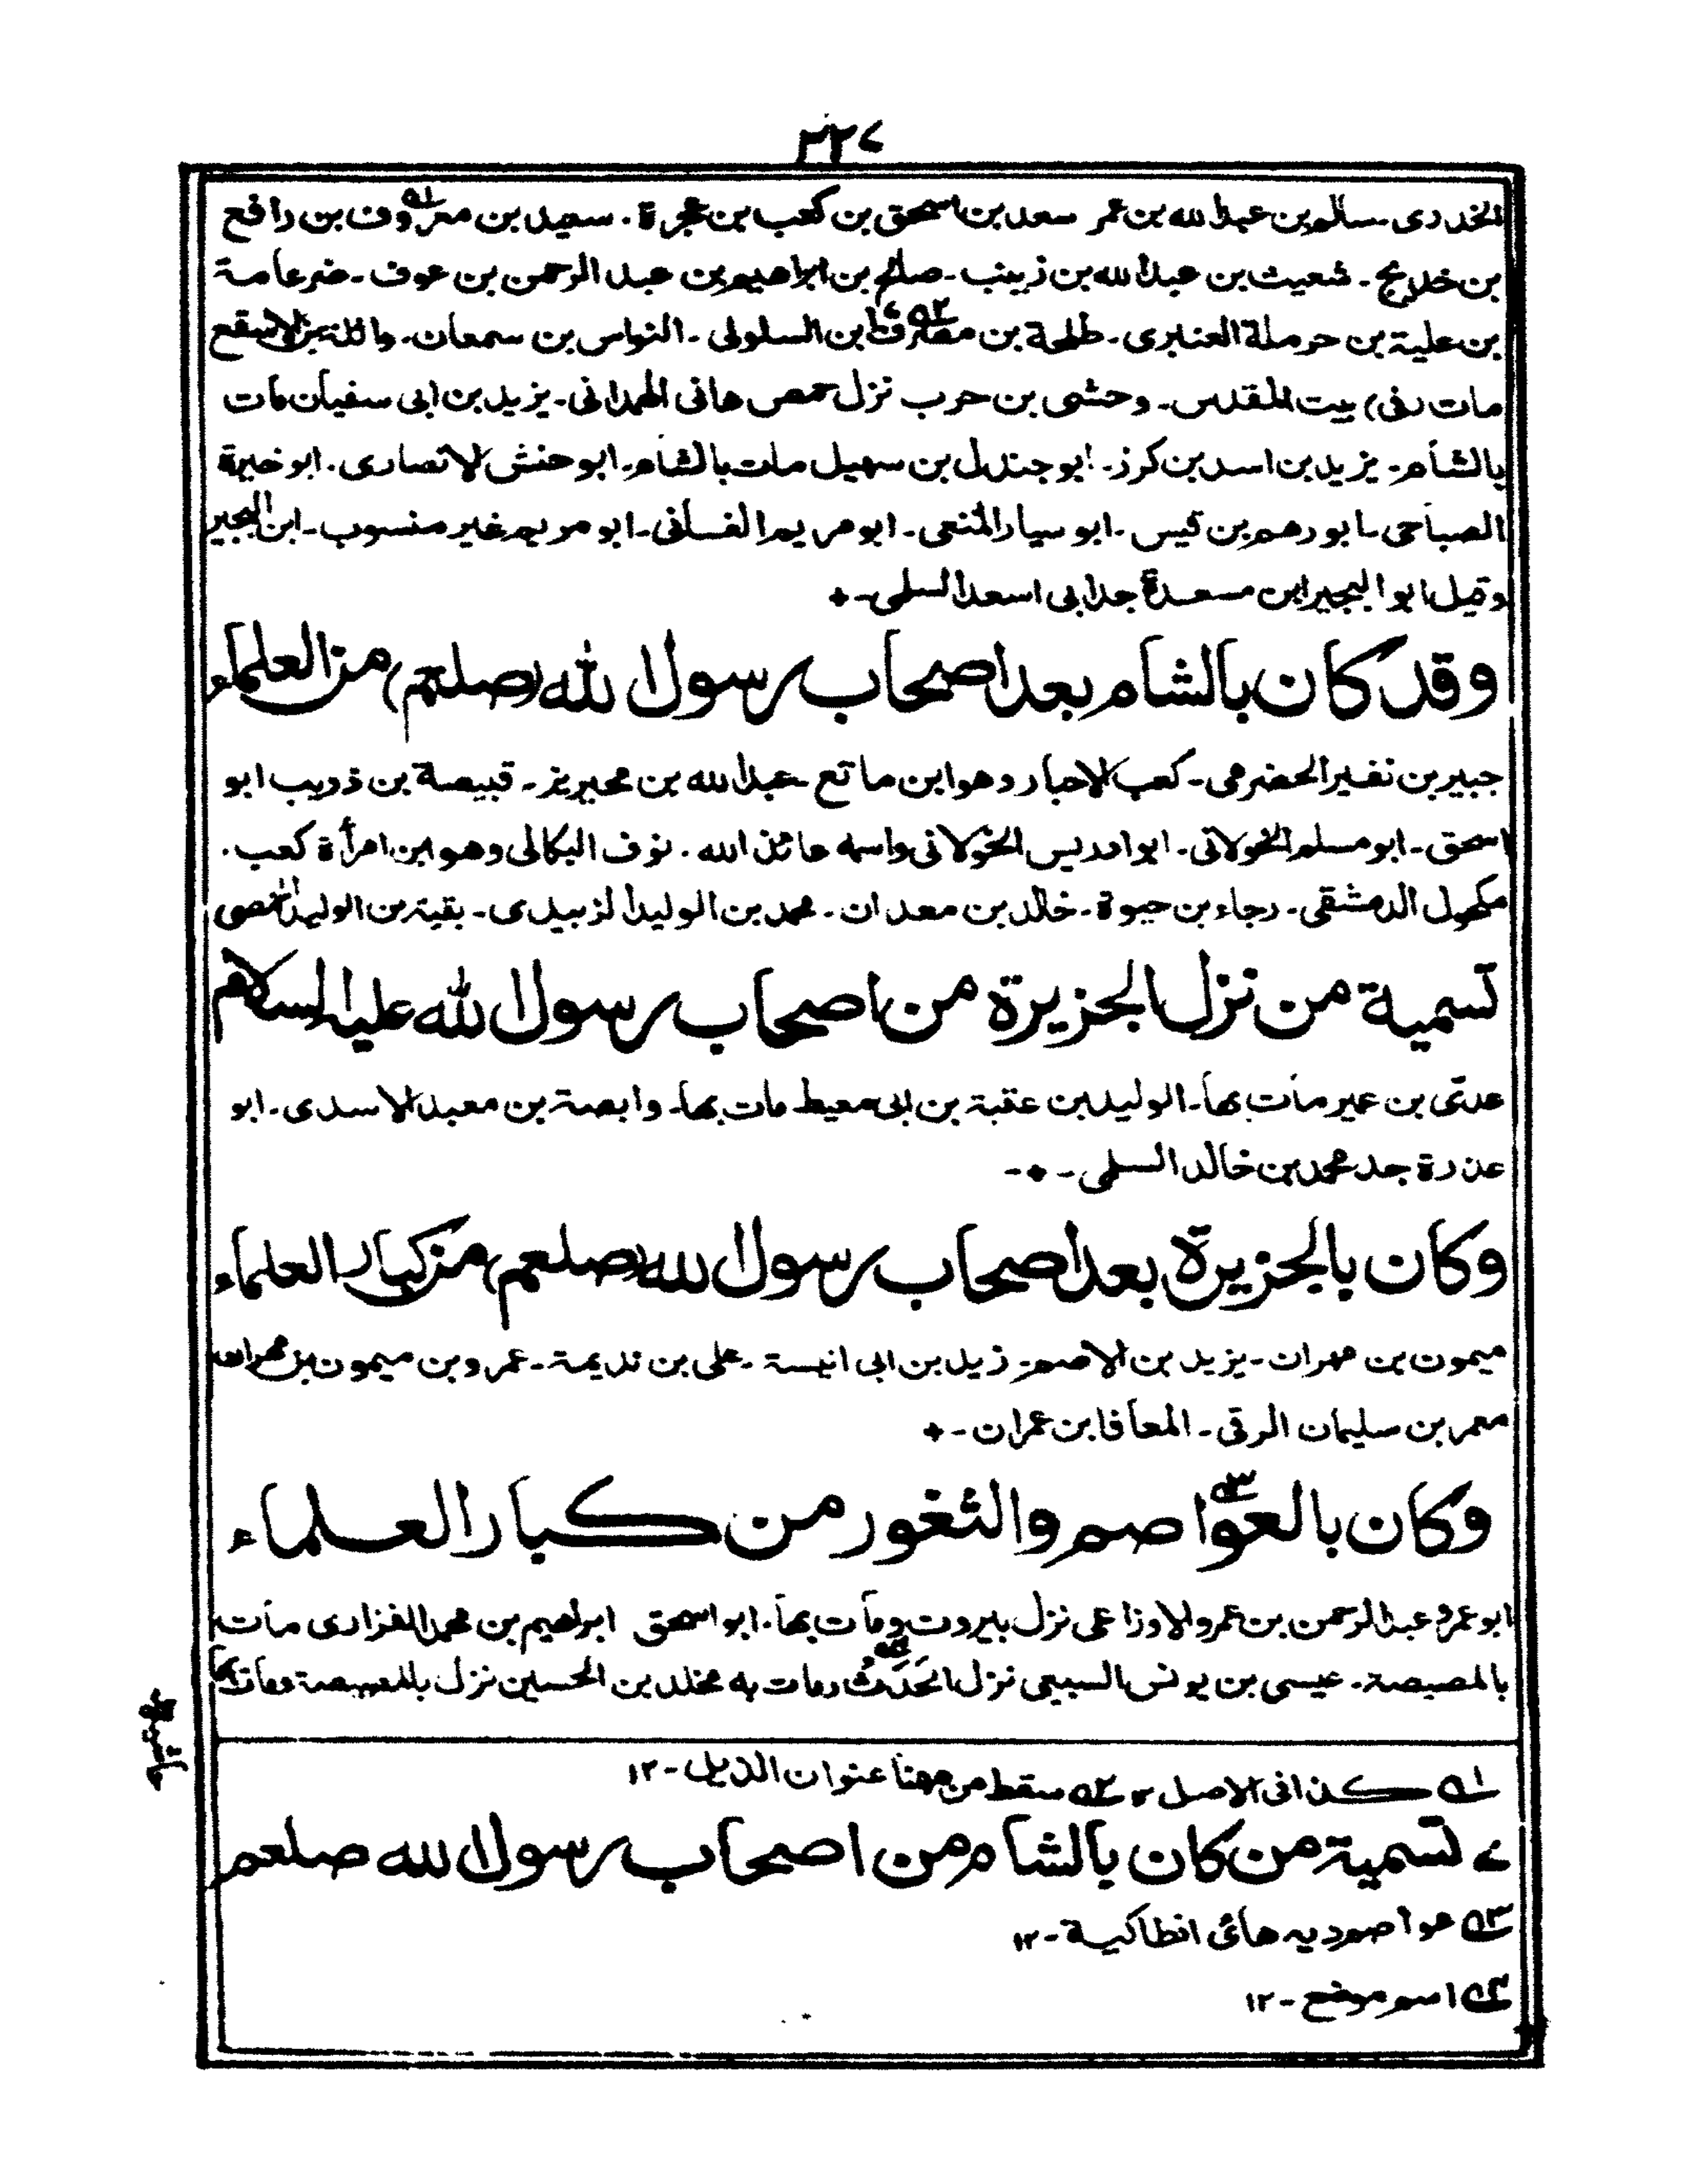 ٣٢٧
الخدرى۔ سالم بن عبد الله بن عمر سعد بن اسحق بن كعب بن عجرة. سعيد بن معروف بن رافع
بن خديج۔ شعيث بن عبد الله بن زبينب۔ صالح بن ابراهيم بن عبد الرحمن بن عوف۔ ضرعامة
بن علية بن حرملة العنبرى۔ طلحة بن مصرف ابن السلولى۔ النواس بن سمعان۔ واثلة بن الاسقع
مات (فى) بيت المقدس۔ وحشى بن حرب نزل حمص هانى الهمدانى۔ يزيد بن ابى سفيان مات
بالشام۔ يزيد بن اسد بن كرز۔ ابو جندل بن سهيل مات بالشام۔ ابو حنش الانصارى. ابو خيرة
الصباحى۔ ابو رهم بن قيس۔ ابو سيار المتعى۔ ابو مريم الغسانى۔ ابو مريم غير منسوب۔ ابن البجير
وقيل ابو البجير ابن مسعدة جد ابى اسعد السلمى۔
وقد كان بالشام بعد اصحاب رسول الله (صلعم) من العلماء
جبير بن نفير الحضرمى۔ كعب الاحبار وهو ابن ماتع۔ عبد الله بن محيريز۔ قبيصة بن ذويب ابو
اسحق۔ ابو مسلم الخولانى۔ ابو ادريس الخولانى واسمه عائذ الله. نوف البكالى وهو ابن امرأة كعب.
مكحول الدمشقى۔ رجاء بن حيوة۔ خالد بن معدان۔ محمد بن الوليد الزبيدى۔ بقية بن الوليد الحمصى
تسمية من نزل الجزيرة من اصحاب رسول الله عليه السلام
عدّى بن عمير مات بها۔ الوليد بن عقبة بن ابى معيط مات بها۔ وابصة بن معبد الاسدى۔ ابو
عذرة جد محمد بن خالد السلمى۔
وكان بالجزيرة بعد اصحاب رسول الله (صلعم) من كبار العلماء
ميمون بن مهران۔ يزيد بن الاصم۔ زيد بن ابى انيسة۔ على بن نديمة۔ عمرو بن ميمون بن مهران
معمر بن سليمان الرقى۔ المعافا بن عمران۔
وكان بالعواصم والثغور من كبار العلماء
ابو عمرو عبد الرحمن بن عمرو الاوزاعى نزل بيروت ومات بها. ابو اسحق ابراهيم بن محمد الفزارى مات
بالمصيصة۔ عيسى بن يونس السبيعى نزل الحَدَثُ ومات به مخلد بن الحسين نزل بالمصيصة ومات بها
حاشية
١ كذا فى الاصل ١٢ ٢ سقط من ههنا عنوان الذيل۔ ١٢
تسمية من كان بالشام من اصحاب رسول الله صلعم
٣ هوا صوديه هائ انطاكية۔ ١٢
٤ اسم موضع۔ ١٢